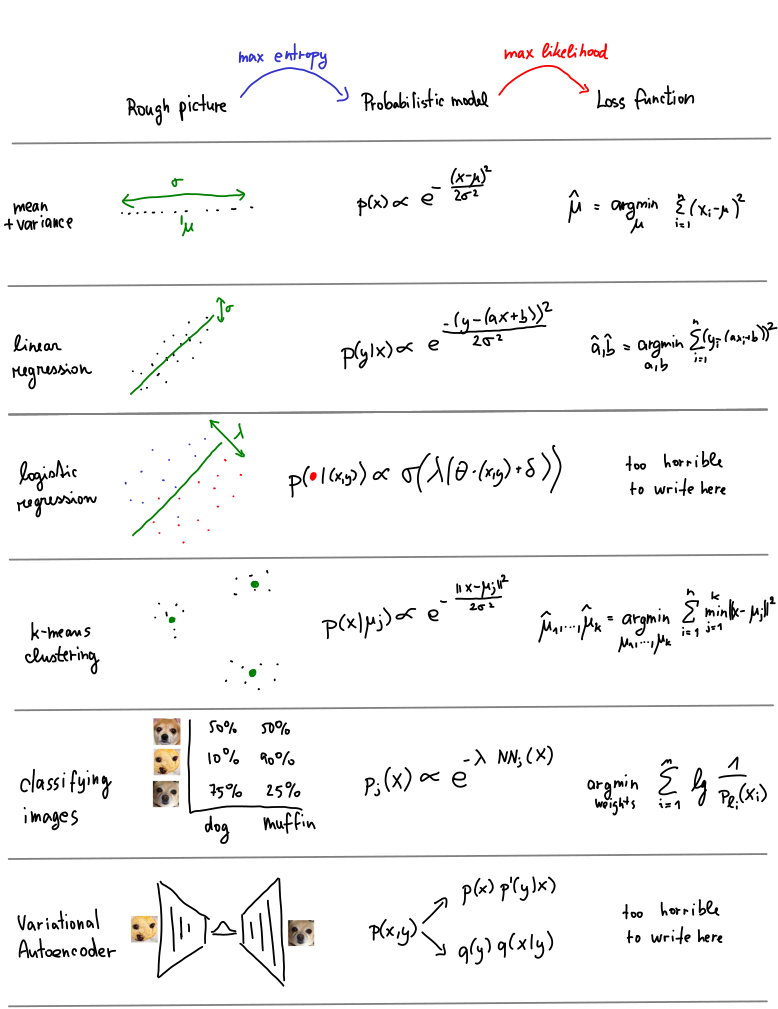 max entropy
max likelihood
Rough picture
Probabilistic model
Loss function
mean
+variance
σ
μ
p(x) ∝ e^{- (x-μ)²/2σ²}
μ̂ = argmin_μ Σ_{i=1}^n (x_i-μ)²
linear
regression
σ
p(y|x) ∝ e^{-(y-(ax+b))²/2σ²}
â,b̂ = argmin_{a,b} Σ_{i=1}^n (y_i-(ax_i+b))²
logistic
regression
λ
p(•|(x,y)) ∝ σ(λ(θ·(x,y)+δ))
too horrible
to write here
k-means
clustering
p(x|μ_j) ∝ e^{- ||x-μ_j||²/2σ²}
μ̂_1,...,μ̂_k = argmin_{μ_1,...,μ_k} Σ_{i=1}^n min_{j=1}^k ||x-μ_j||²
classifying
images
50% 50%
10% 90%
75% 25%
dog muffin
p_j(x) ∝ e^{-λ NN_j(x)}
argmin_{weights} Σ_{i=1}^n lg 1/p_{l_i}(x_i)
Variational
Autoencoder
p(x,y)
p(x) p'(y|x)
q(y) q(x|y)
too horrible
to write here